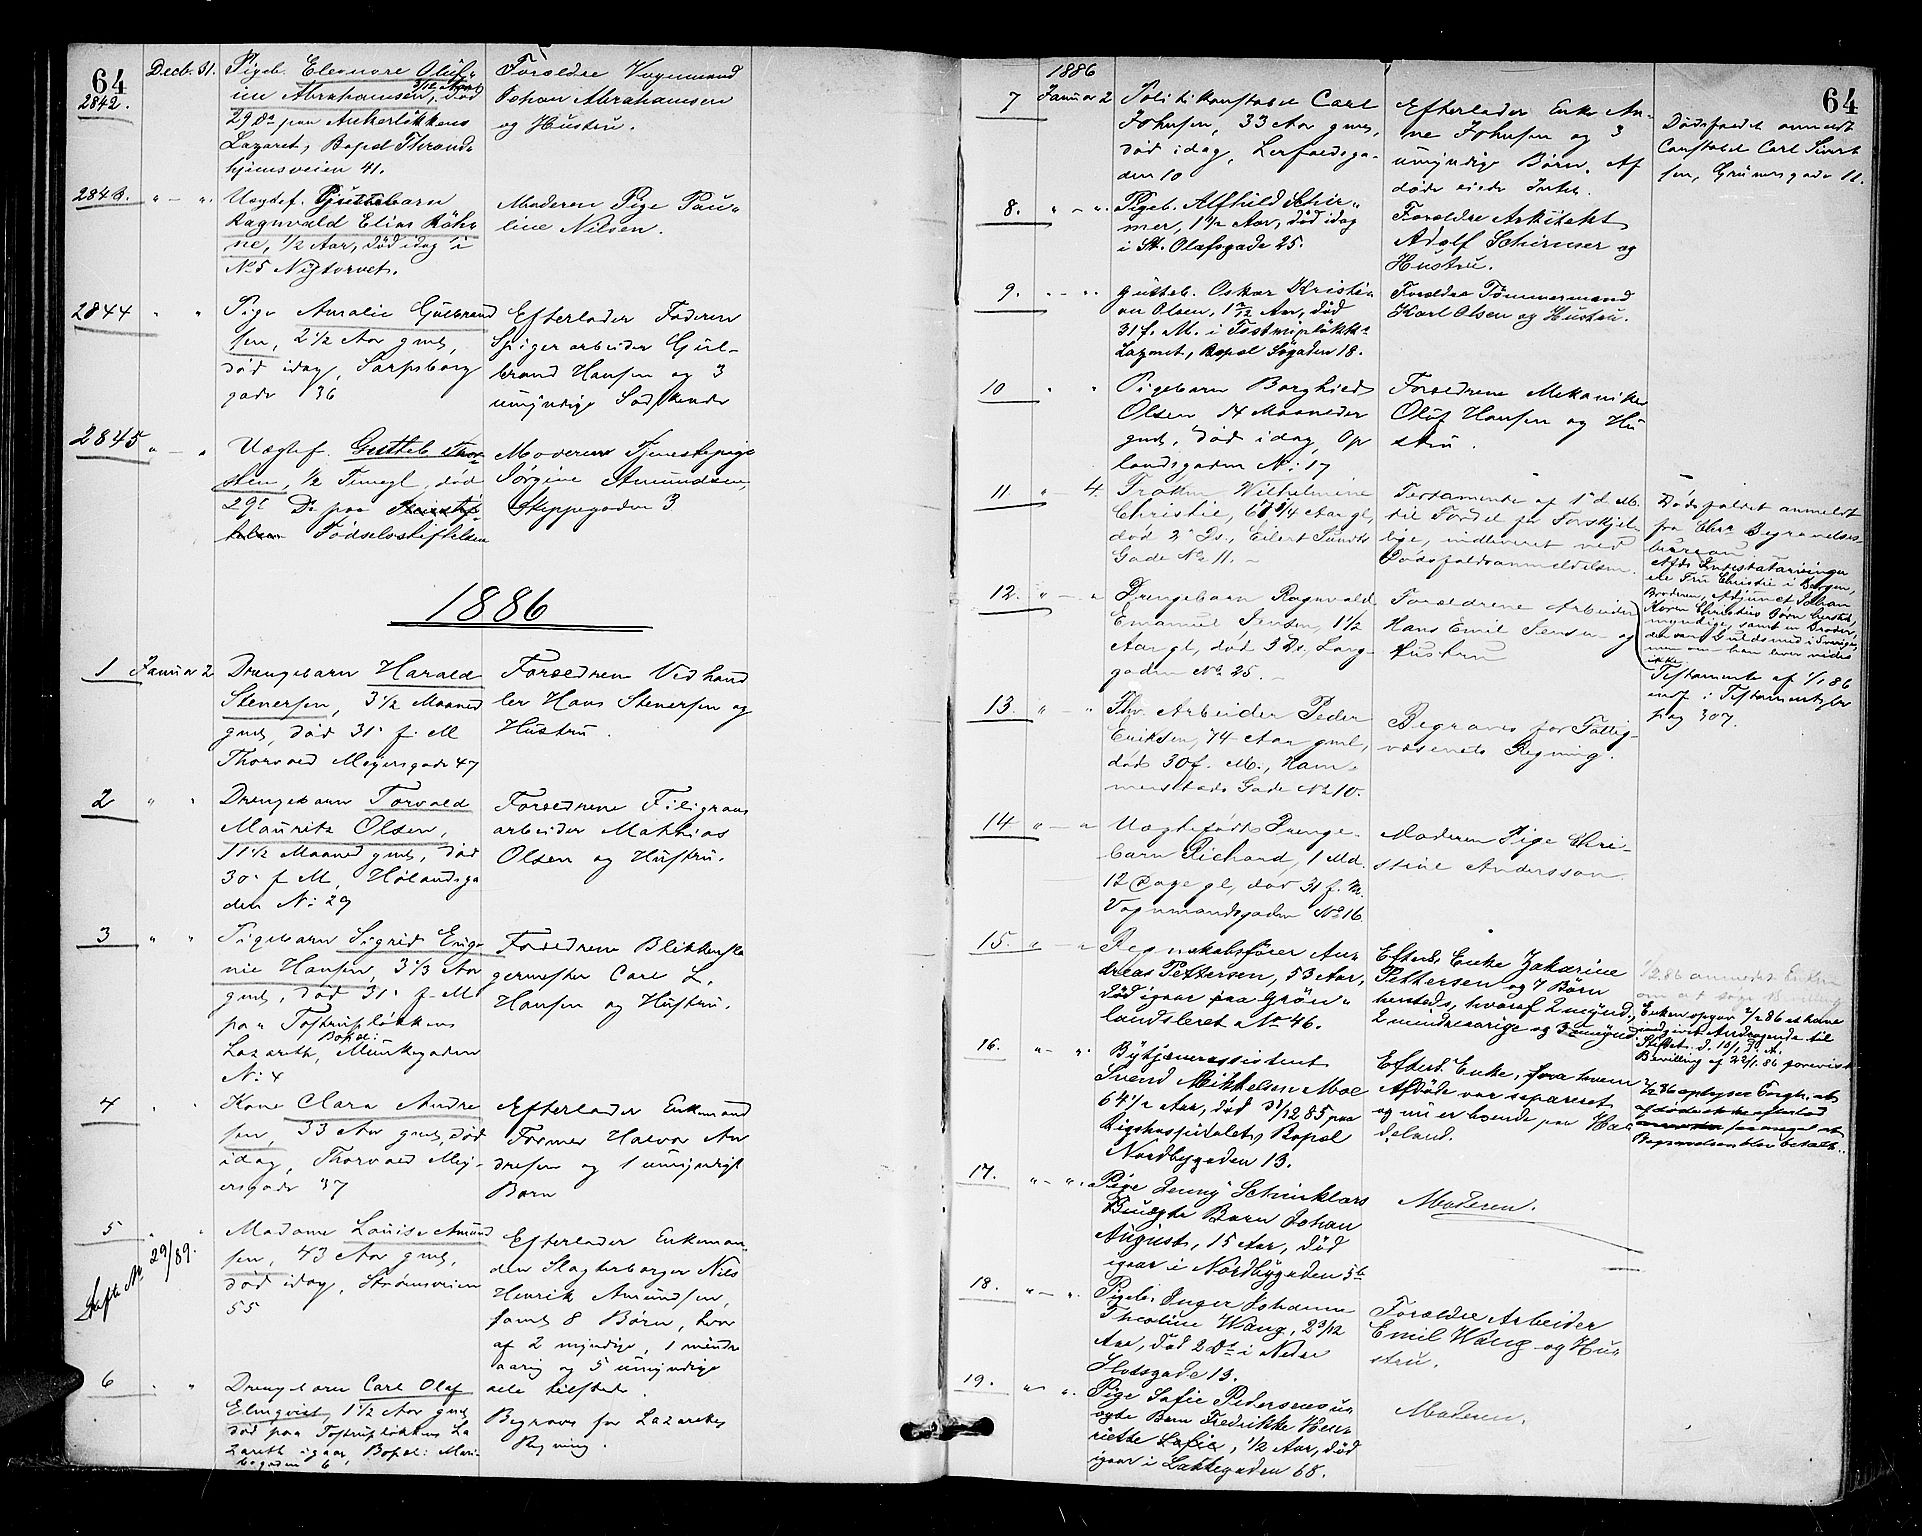 64
2842.
Decb. 31.
Pigeb. Eleonore Oluf-
ine Abrahamsen, 3/12 Aar, død
29 Ds paa Ankerløkkens
Lazaret, Bopæl Thrond-
hjemsveien 41.
Foreldre Vognmand
Johan Abrahamsen
og Hustru.
2843. " - ".
Uægtef. Guttebarn
Ragnvald Elias
1/2 Aar, død idag i
No 5 Nytorvet.
Moderen Pige Pau-
line Nilsen.
2844 " "
Pige Amalie Gulbrand
sen, 2 1/2 Aar gml,
død idag, Sarpsborg
gade 36
Efterlader Faderen
Spigerarbeider Gul-
brand Hansen og 3
umyndige Sødskende
2845 " - "
Uægtef. Gutteb. Thor-
sten, 1/2 Time gl, død
29de Ds paa
Fødselsstiftelsen
Moderen Tjenestepige
Jørgine Amundsen,
Skippergaden 3
1886
1 Januar 2
Drengebarn Harald
Stenersen, 3 1/2 Maaned
gml, død 31. f. M
Thorvald Meyersgade 47
Forældrene Vedhand
ler Hans Stenersen og
Hustru.
2 " "
Drengebarn Torvald
Mauritz Olsen,
11 1/2 Maaned gml, død
30. f M, Hølandsga
den N: 29
Forældrene Filigrans
arbeider Mathias
Olsen og Hustru.
3 " "
Pigebarn Sigrid Euge
nie Hansen, 3 1/3 Aar
gml, død 31. f. M
paa Tostrupløkkens
Bopæl:
Lazareth, Munkegaden
N: 4
Forældrene Blikkensla
germester Carl L.
Hansen og Hustru.
4 " "
Kone Clara Andre
sen, 33 Aar gml, død
idag, Thorvald Mey-
ersgade 37
Efterlader Enkemand
Former Halvor An
dresen og 1 umyndigt
Barn
5 " "
Skifte No 29/89.
Madame Louise Amund
sen, 43 Aar gml,
død idag, Strømsveien
55
Efterlader Enkeman-
den Slagterborger Nils
Henrik Amundsen,
samt 8 Børn, hvor
af 2 myndige, 1 mindre
aarig og 5 umyndige
alle tilstede.
6 " "
Drengebarn Carl Olaf
Elmqvist, 1 1/2 Aar gml,
død paa Tostrupløkkens La
zareth igaar, Bopæl: Mari-
bogaden 6
Begraves for Lazarethets
Regning.
64
1886
7 Januar 2
Politikonstabel Carl
Johnsen, 33 Aar gml,
død idag, Lerfaldsga-
den 10
Efterlader Enke An-
ne Johnsen og 3
umyndige Børn. Af
døde eiede Intet.
Dødsfaldet anmeldt
Constabel Carl Sivert
sen, Grünersgade 11.
8. " - ".
Pigeb. Alfhild Schir-
mer, 1 1/2 Aar, død idag
i St. Olafsgade 25.
Foreldre Arkitekt
Adolf Schirmer og
Hustru.
9. " - ".
Gutteb. Oskar Kristi-
an Olsen, 1 2/12 Aar, død
31 f. M. i Tostrupløkkens
Lazaret, Bopæl Søgaden 18.
Foreldre Tømmermand
Karl Olsen og Hustru.
10 " "
Pigebarn Borghild
Olsen 14 Maaneder
gml, død idag, Op
landsgaden N: 17
Forældrene Mekaniker
Oluf Hansen og Hu
stru.
11. " - 4.
Frøken Wilhelmine
Christie, 67 3/4 Aar gl,
død 2. Ds., Eilert Sundts
Gade No 11. -
Testamente af 1' d. M.
til Fordel for Forskjel-
lige, indleveret ved
Dødsfaldsanmeldelsen.
Dødsfaldet anmeldt
fra Chra Begravelses-
bureau
Afds Intestatarvinger
ere Fru Christie i Bergen,
Broderen, Adjunct Johan
Koren Christies Børn
myndige, samt en Broder,
der var Guldsmed i Sverige,
men om han lever vides
ikke
Testamente af 1/1 86
indf i Testamentsprot
pag 307.
12. " - "
Drengebarn Ragnvald
Emanuel Jensen, 1 1/2
Aar gl, død 3 Ds, Lang-
gaden No 25. -
Forældrene Arbeider
Hans Emil Jensen og
Hustru
13. " - "
Fhv. Arbeider Peder
Eriksen, 74 Aar gml,
død 30 f. M., Ham-
merstads Gade No 10.
Begraves for Fattig-
væsenets Regning.
14 " - "
Uægtefødt Drenge-
barn Richard, 1 Md.
12 Dage gl, død 31 f. M.
Vognmandsgaden No 16.
Moderen Pige Chri-
stine Andersson.
15. " - "
Regnskabsfører An-
dreas Pettersen, 53 Aar,
død igaar paa Grøn-
landsleret No 46.
Efterl. Enke Zakarine
Pettersen og 7 Børn
herståds, hvoraf 2 mynd.,
2 mindreaarige og 3 umynd.
1/2 86 anmeldt Enken
om at søge Bevilling
Enken opgav 2/2 86 at have
indgivet Andragende til
Stiftet. d. 18/1 d. A.
Bevilling af 22/1. 86 forevist.
16. " - ".
Bytjenerassistent
Svend Mikkelsen Moe
64 1/2 Aar, død 31/12 85 paa
Rigshospitalet, Bopæl
Nordbygaden 13.
Efterl. Enke, fra hvem
Afdøde var separeret
og nu er boende paa Ha-
deland.
7/2 86 oplyser Forgj. at
afdøde ikke efterlod
saameget at
Begravelsen blev betalt.
17. " - ".
Pige Jenny Schinklars
uægte Barn Johan
August, 15 Aar, død
igaar i Nordbygaden 5b
Moderen.
18. " - ".
Pigeb. Inger Johanne
Theoline Wang, 2 3/12
Aar, død 2 Ds i Nedre
Slotsgade 13.
Foreldre Arbeider
Emil Wang og Hu-
stru.
19. " - ".
Pige Sofie Pedersens u-
ægte Barn Fredrikke Hen-
riette Sofie, 1/2 Aar, død
igaar i Lakkegaden 68.
Moderen.